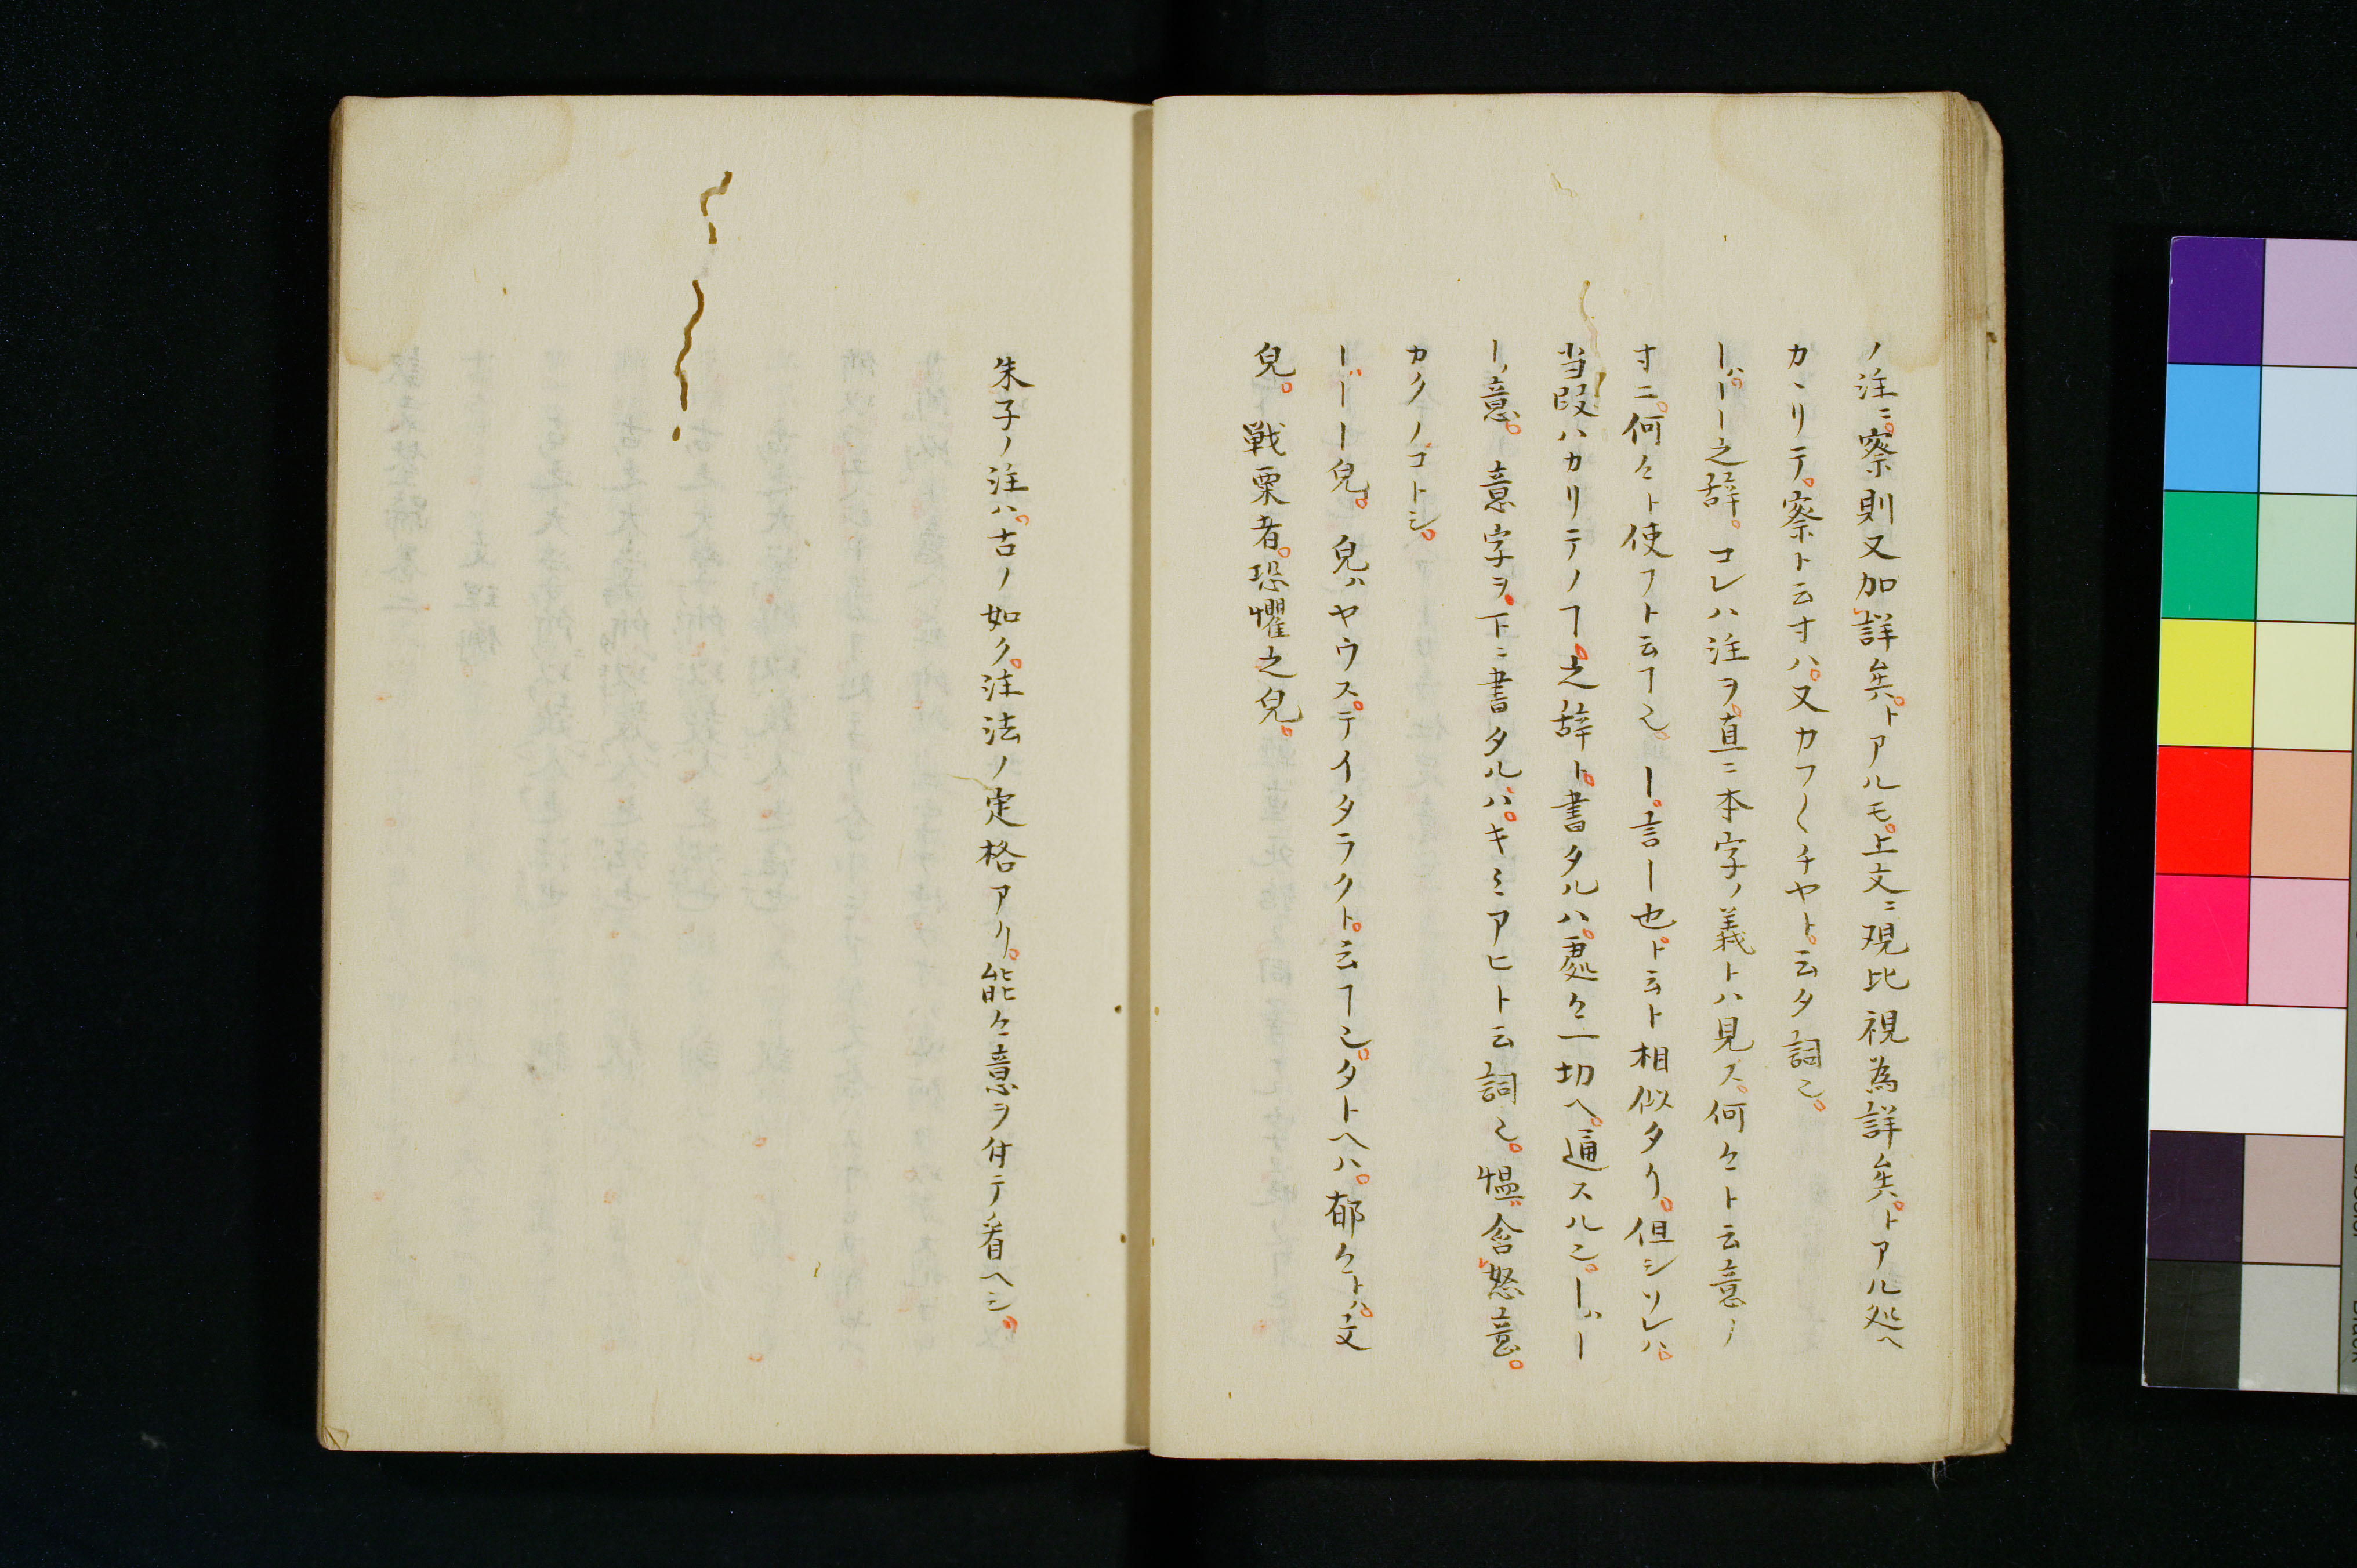 ノ注ニ。察則又加詳矣。トアルモ。上文ニ覌比視為詳矣。トアル処ヘ
カヽリテ。察ト云寸ハ。又カフ〱チヤト。云タ詞〻。
ーハ。ーー之辞。コレハ注ヲ。直ニ本字ノ義トハ見ズ。何〻ト云意ノ
寸ニ。何〻ト使フト云ヿ〻。ー。言ー也。ト云ト相似タリ。但シソレハ。
当段ハカリテノヿ。之辞ト。書タルハ。処〻一切ヘ。通スル〻。ーハー
ー意。意字ヲ。下ニ書タルハ。キミアヒト云詞〻。慍。含怒意。
カクノコトシ。
ーハーー皃。皃ハヤウス。テイタラクト。云ヿ〻。タトヘハ。郁〻トハ。文
皃。戦栗者。恐懼之皃。
朱子ノ注ハ。古ノ如ク。注法ノ定格アリ。能〻意ヲ付テ看ヘシ。